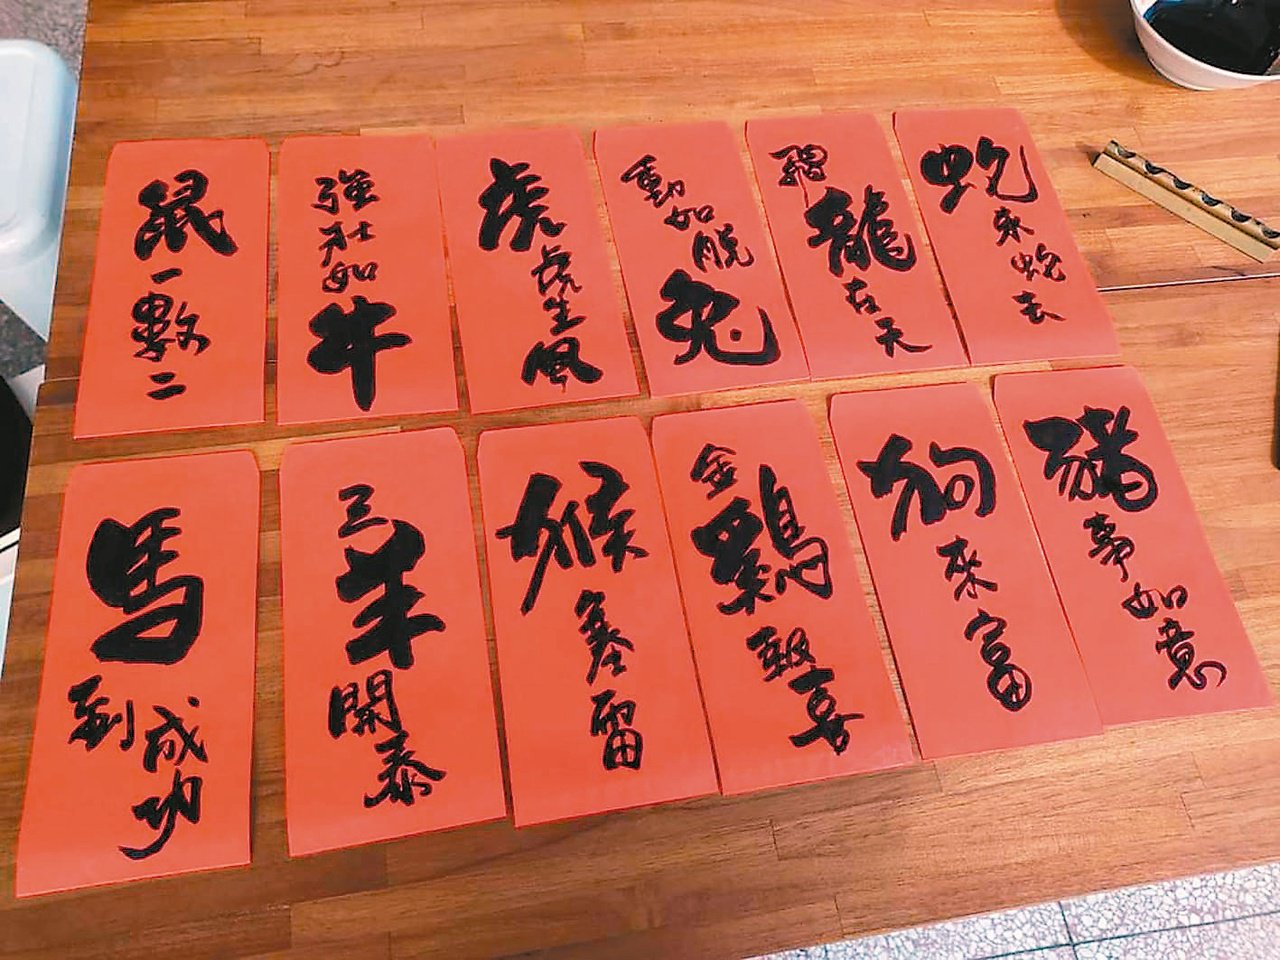 鼠一數二
強壯如牛
虎虎生風
動如脫兔
飛龍在天
蛇來蛇去
馬到成功
三羊開泰
猴塞雷
金雞報喜
狗來富
豬事如意